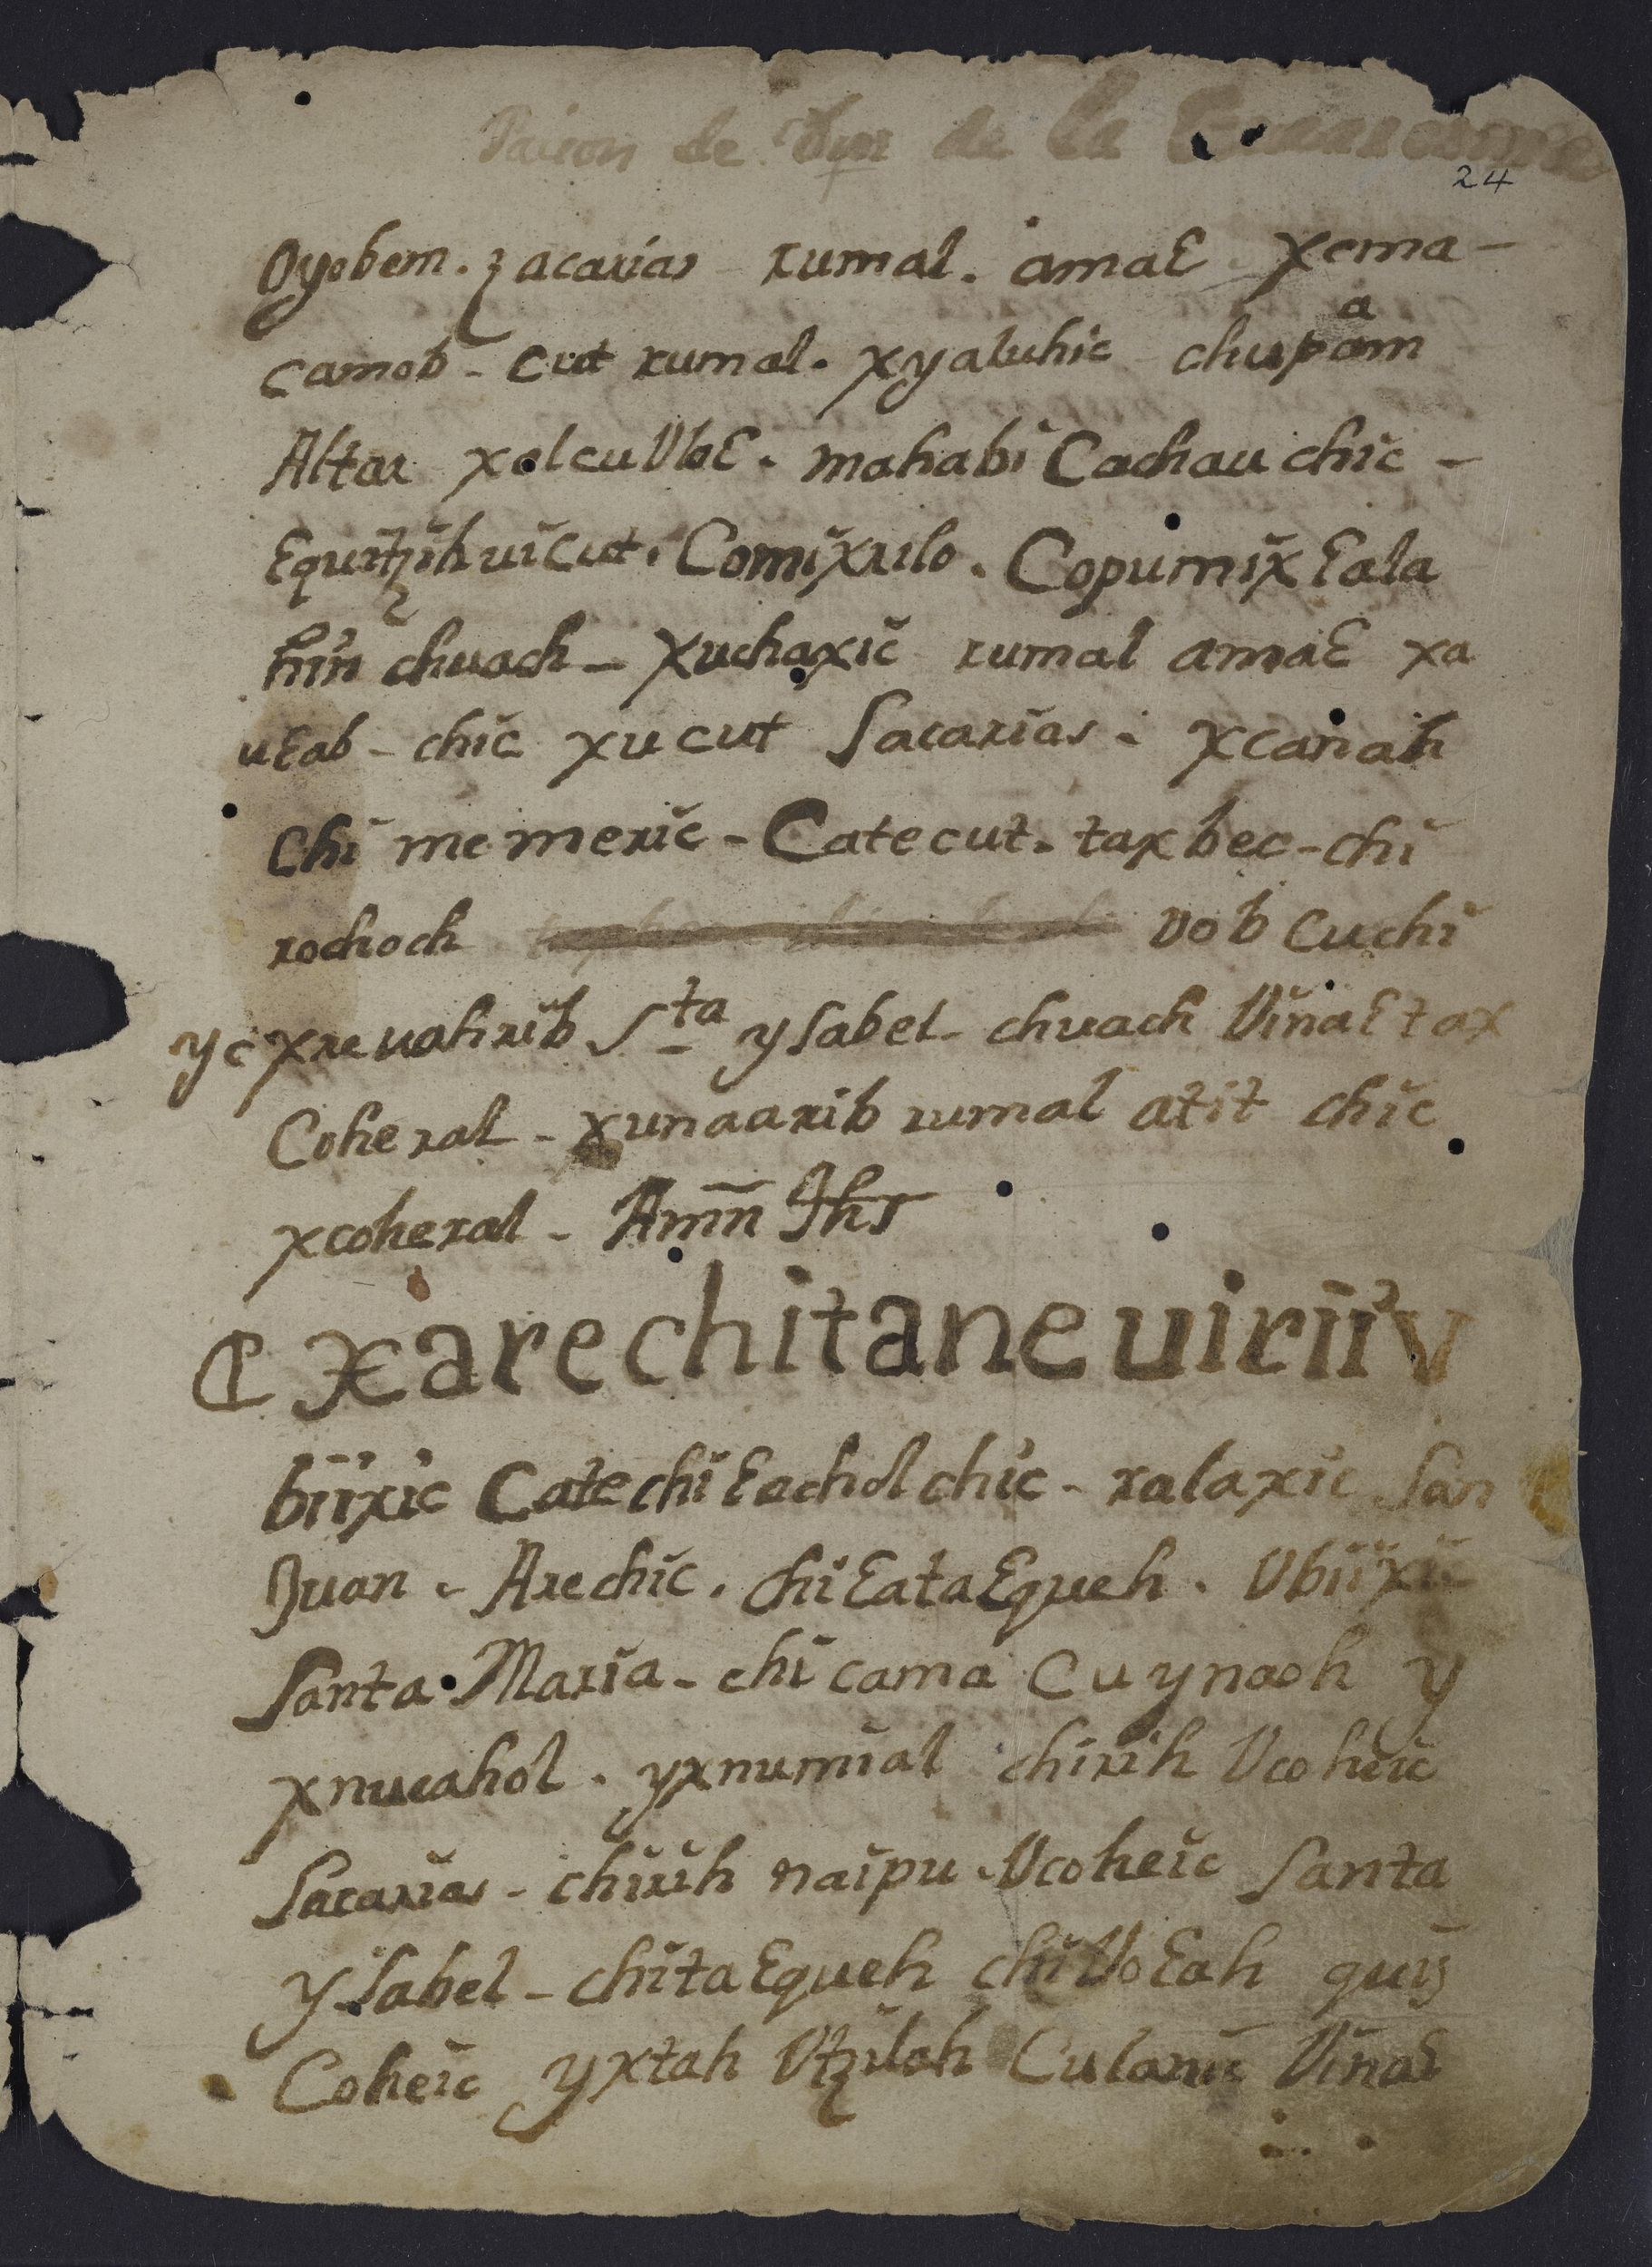 de de la
24
Oyobem . zacarias rumal . amaɛ xema-
camob - cut rumal . xyaluhic chupam
a
Altar xelcu Vloɛ . mahabi Cachau chic -
ɛquitzih uicut . Comixulo . Copumix ɛala
hin chuach - xuchaxic rumal amaɛ xa
uɛab - chic xucut Sacarias - xcanah
Chi memeric - Catecut . taxbec - chi
rochoch Vob Cuchi
yc xreuahrib Sta ysabel - chuach Vinaɛ tax
Coheral - xunaarib rumal atit chic
xcoheral - Amen Jhs
₡ xarechitaneuiriiv
biixic Catechi ɛachol chic - ralaxic San
Juan - Arechic . chi ɛata ɛqueh . Vbiixic
Santa Maria - chi cama Cu ynaoh y
xnucahol . yxnumial chirih Vcoheic
Sacarias - chirih naipu . Vcoheic Santa
ysabel - chita ɛqueh chi Vo ɛah quiz
Coheic yxtah Vtzilah Culanic Vinaɛ